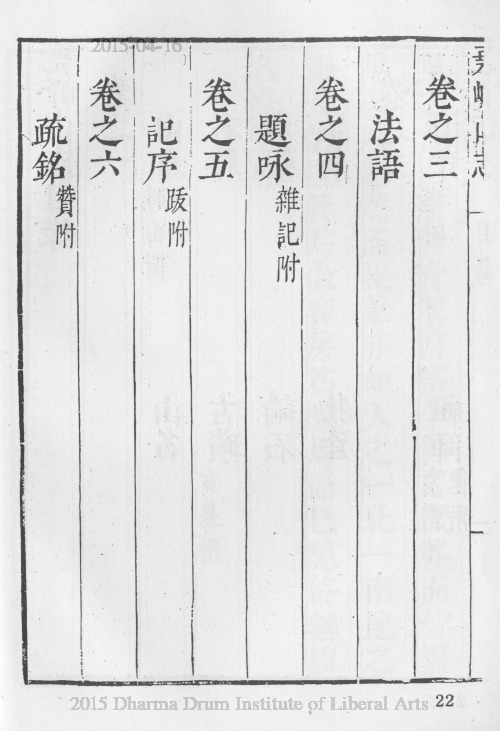 卷之三
法語
卷之四
題咏 雜記附
卷之五
記序 䟦附
卷之六
疏銘 贊附
2015-04-16
2015 Dharma Drum Institute of Liberal Arts 22